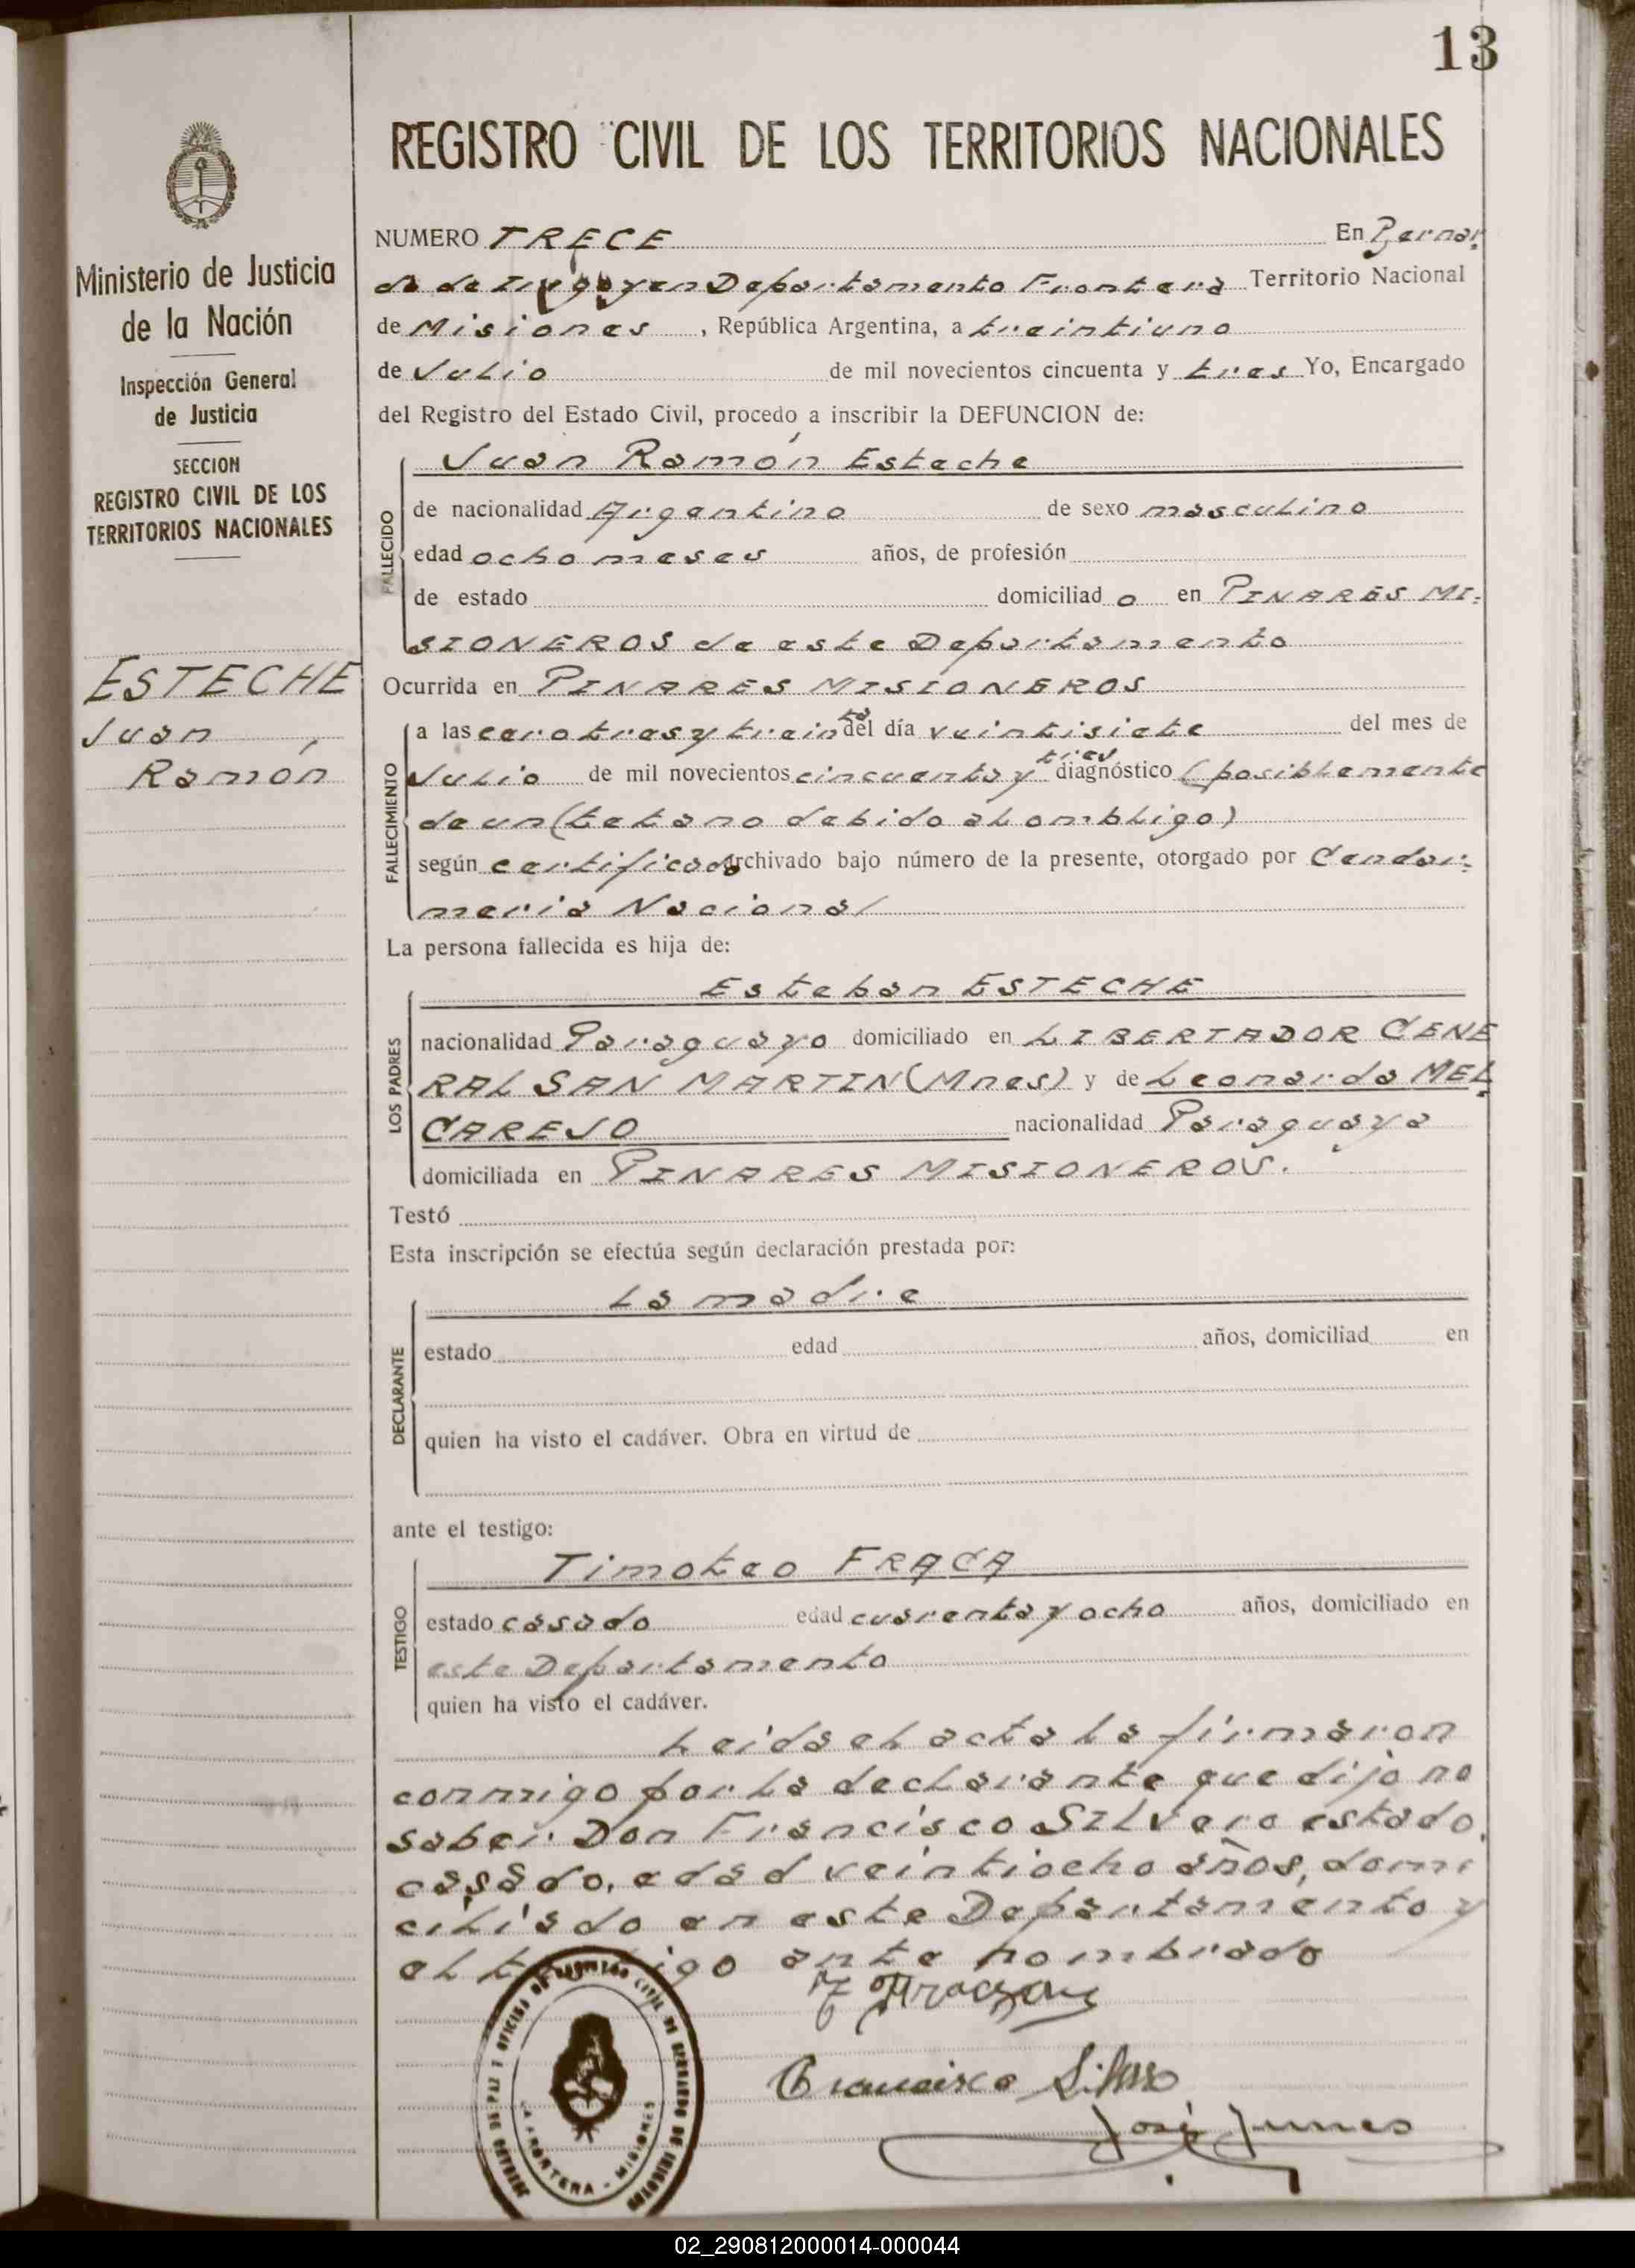 13
REGISTRO CIVIL DE LOS TERRITORIOS NACIONALES
Ministerio de Justicia
de la Nación
Inspección General
de Justicia
SECCION
REGISTRO CIVIL DE LOS
TERRITORIOS NACIONALES
ESTECHE
Juan
Ramón
NUMERO TRECE En Bernar
do de Irigoyen Departamento Frontera Territorio Nacional
de Misiones , República Argentina, a treintiuno
de Julio de mil novecientos cincuenta y tres Yo, Encargado
del Registro del Estado Civil, procedo a inscribir la DEFUNCION de:
Juan Ramón Esteche
FALLECIDO
de nacionalidad Argentino de sexo masculino
edad ocho meses años, de profesión
de estado domiciliad o en PINARES MI=
SIONEROS de este Departamento
Ocurrida en PINARES MISIONEROS
FALLECIMIENTO
a las cero tres y treinta del día veintisiete del mes de
Julio de mil novecientos cincuenta y tres diagnóstico (posiblemente
de un (tetano debido al ombligo)
según certificado archivado bajo número de la presente, otorgado por Gendar=
meria Nacional
La persona fallecida es hija de:
LOS PADRES
Esteban ESTECHE
nacionalidad Paraguayo domiciliado en LIBERTADOR GENE
RAL SAN MARTIN (Mnes) y de Leonarda MEL
GAREJO nacionalidad Paraguaya
domiciliada en PINARES MISIONEROS.
Testó
Esta inscripción se efectúa según declaración prestada por:
DECLARANTE
La madre
estado edad años, domiciliad en
quien ha visto el cadáver. Obra en virtud de
ante el testigo:
TESTIGO
Timoteo FRAGA
estado casado edad cuarenta y ocho años, domiciliado en
este Departamento
quien ha visto el cadáver.
Leida el acta la firmaron
conmigo por la declarante que dijo no
saber Don Francisco SILvero estado
casado, edad veintiocho años, domi
ciliado en este Departamento y
el testigo ante nombrado
Francisco Silvero
José Junes
LA FRONTERA - MISIONES
02_290812000014-000044